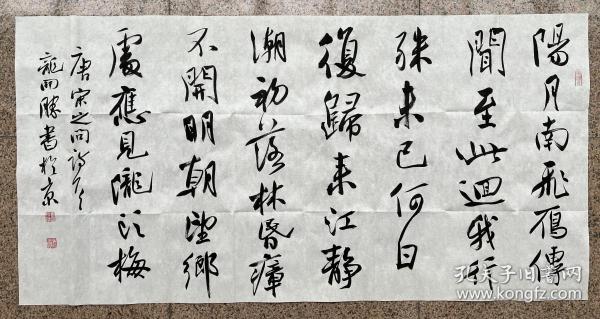 陽月南飛雁傳
聞至此迴我行
殊未已何日
復歸来江靜
潮初落林昏瘴
不開明朝望鄉
處應見隴頭梅
唐宋之問詩一首
龍而勝書於京
孔夫子旧书网
www.kongfz.com